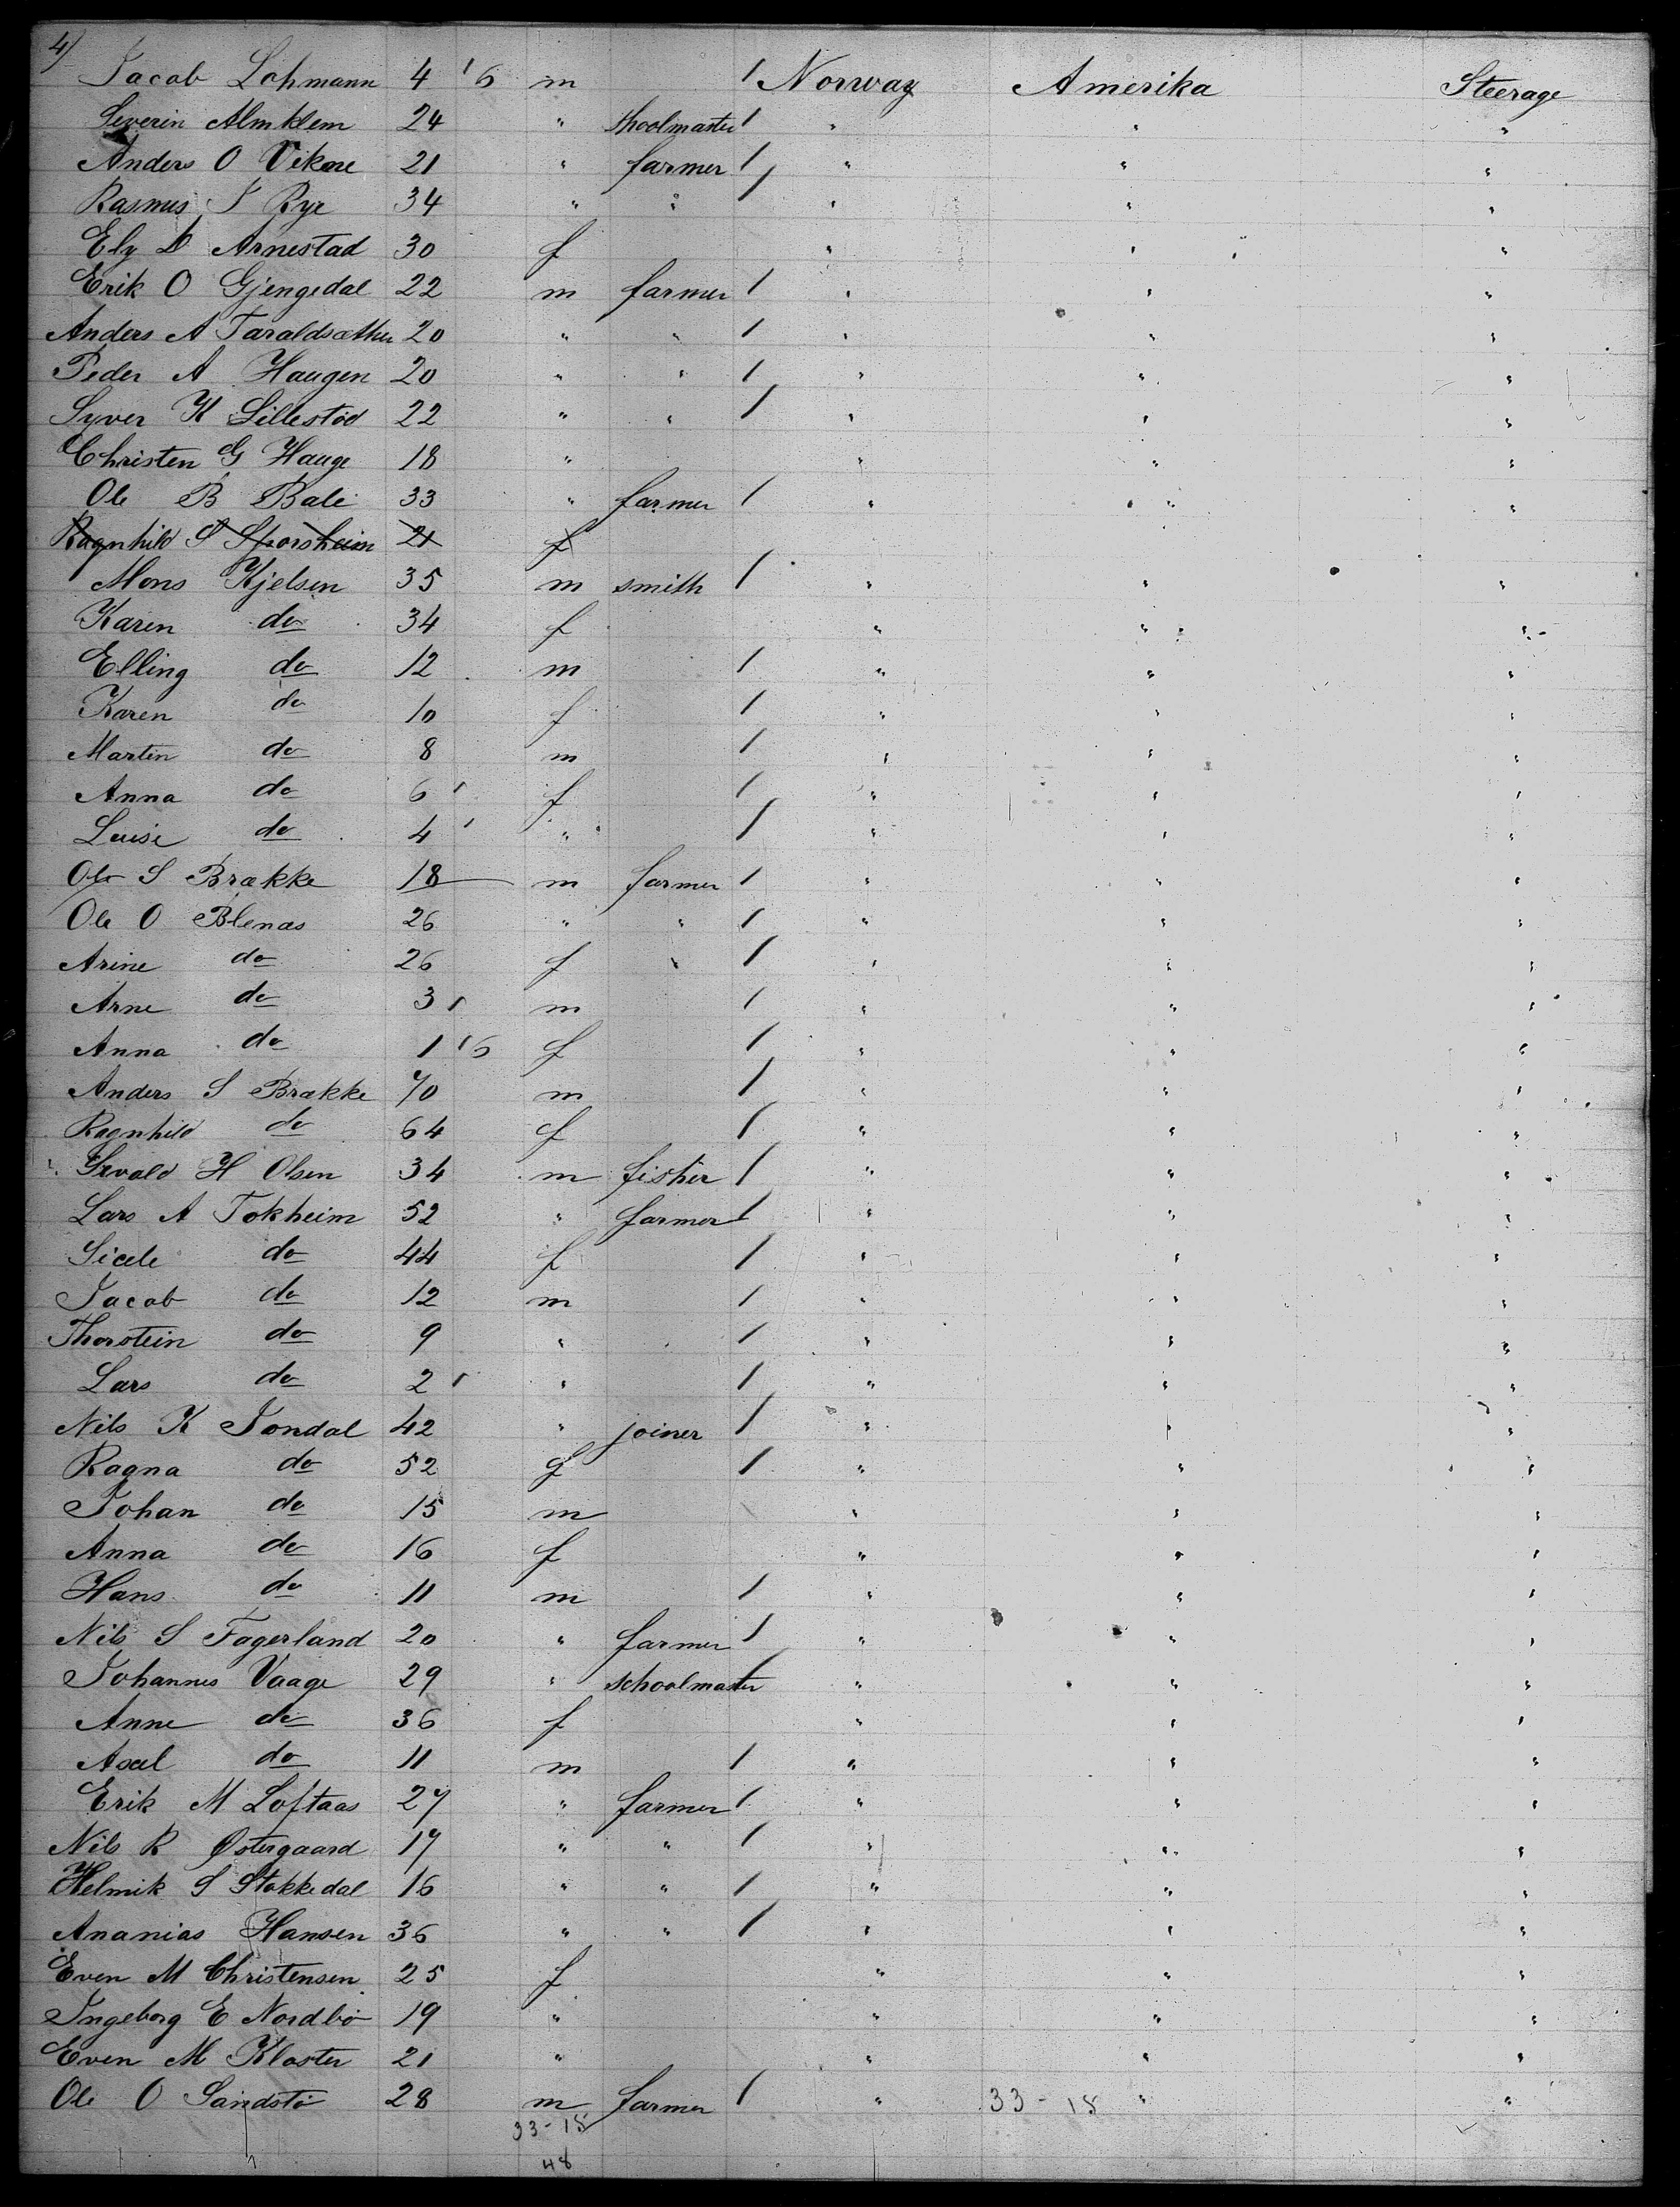 4)
Jacob Lohmann 4 ' 6 m / Norway Amerika Steerage
Severin Almklem 24 " shoolmaster / " " "
Anders O Vikore 21 " farmer / " " "
Rasmus J Rye 34 " " / " " "
Ely D Arnestad 30 f " " "
Erik O Gjengedal 22 m farmer / " " "
Anders A Taraldsæther 20 " " / " " "
Peder A Haugen 20 " " / " " "
Syver K Lillestöd 22 " " / " " "
Christen G Hauge 18 " " " "
Ole B Bale 33 " farmer / " " "
Ragnhild S Sporsheim 21 f
Mons Kjelsen 35 m smith / " " "
Karen do 34 f " " "
Elling do 12 m / " " "
Karen do 10 f / " " "
Martin do 8 m / " " "
Anna do 6 ' f / " " "
Luise do 4 ' " / " " "
Ole S Brække 18 m farmer / " " "
Ole O Blenæs 26 " " / " " "
Arine do 26 f " / " " "
Arne do 3 ' m / " " "
Anna do 1 ' 6 f / " " "
Anders S Brække 70 m / " " "
Ragnhild do 64 f / " " "
H Olsen 34 m fisher / " " "
Lars A Tokheim 52 " farmer / " " "
do 44 f / " " "
Jacob do 12 m / " " "
Thorstein do 9 " / " " "
Lars do 2 ' " / " " "
Nils K Jondal 42 " joiner / " " "
Ragna do 52 f / " " "
Johan do 15 m " " "
Anna do 16 f " " "
Hans do 11 m / " " "
Nils S Fagerland 20 " farmer / " " "
Johannes Vaage 29 " schoolmaster / " " "
Anne do 36 f " " "
Axel do 11 m / " " "
Erik M Loftaas 27 " farmer / " " "
Nils R Östergaard 17 " " / " " "
Helmik S Stokkedal 16 " " / " " "
Ananias Hansen 36 " " / " " "
Even M Christensen 25 f " " "
Ingeborg E Nordbö 19 " " " "
Even M Kloster 21 " " " "
Ole O Sandstö 28 m farmer / " 33 - 18 " "
33 - 15
48